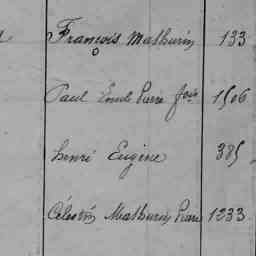 François Mathurin 133
Paul Emile Pierre 1506
henri Eugène 385
Célestin Mathurin Pierre 1233